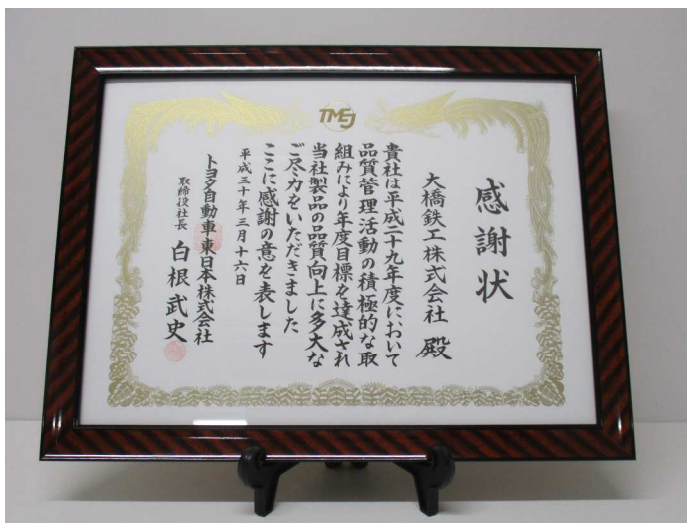 TMEJ
感謝状
大橋鉄工株式会社 殿
貴社は平成二十九年度において
品質管理活動の積極的な取
組みにより年度目標を達成され
当社製品の品質向上に多大な
ご尽力をいただきました
ここに感謝の意を表します
平成三十年三月十六日
トヨタ自動車東日本株式会社
取締役社長 白根武史